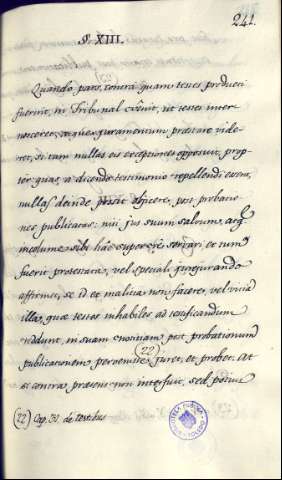 241.
§. XIII.
Quando pars, contra quam testes produci
fuerint, in Tribunal citavit, ut testes inter
nosceret, a que juramentum prestare vide
ret, si tam nullas eis exceptiones opposuit, prop
ter quas, a dicendo testimonio repellendi essent,
nullas deinde potest objicere, post probatio
nes publicatas: nisi jus suum salvum, atq.
incolume sibi hac super re servari et num
fuerit protestatus, vel speciali jurejurando
affirmet, se id et malitia non facere, vel vitia
illa, quæ testes inhabiles ad testificandum
reddunt, in suam cognitionem post probationum
publicationem pervenire (22) juret, et probet. At
si contra præsens non interfuit, sed potius
(22) Cap. 31. de testibus